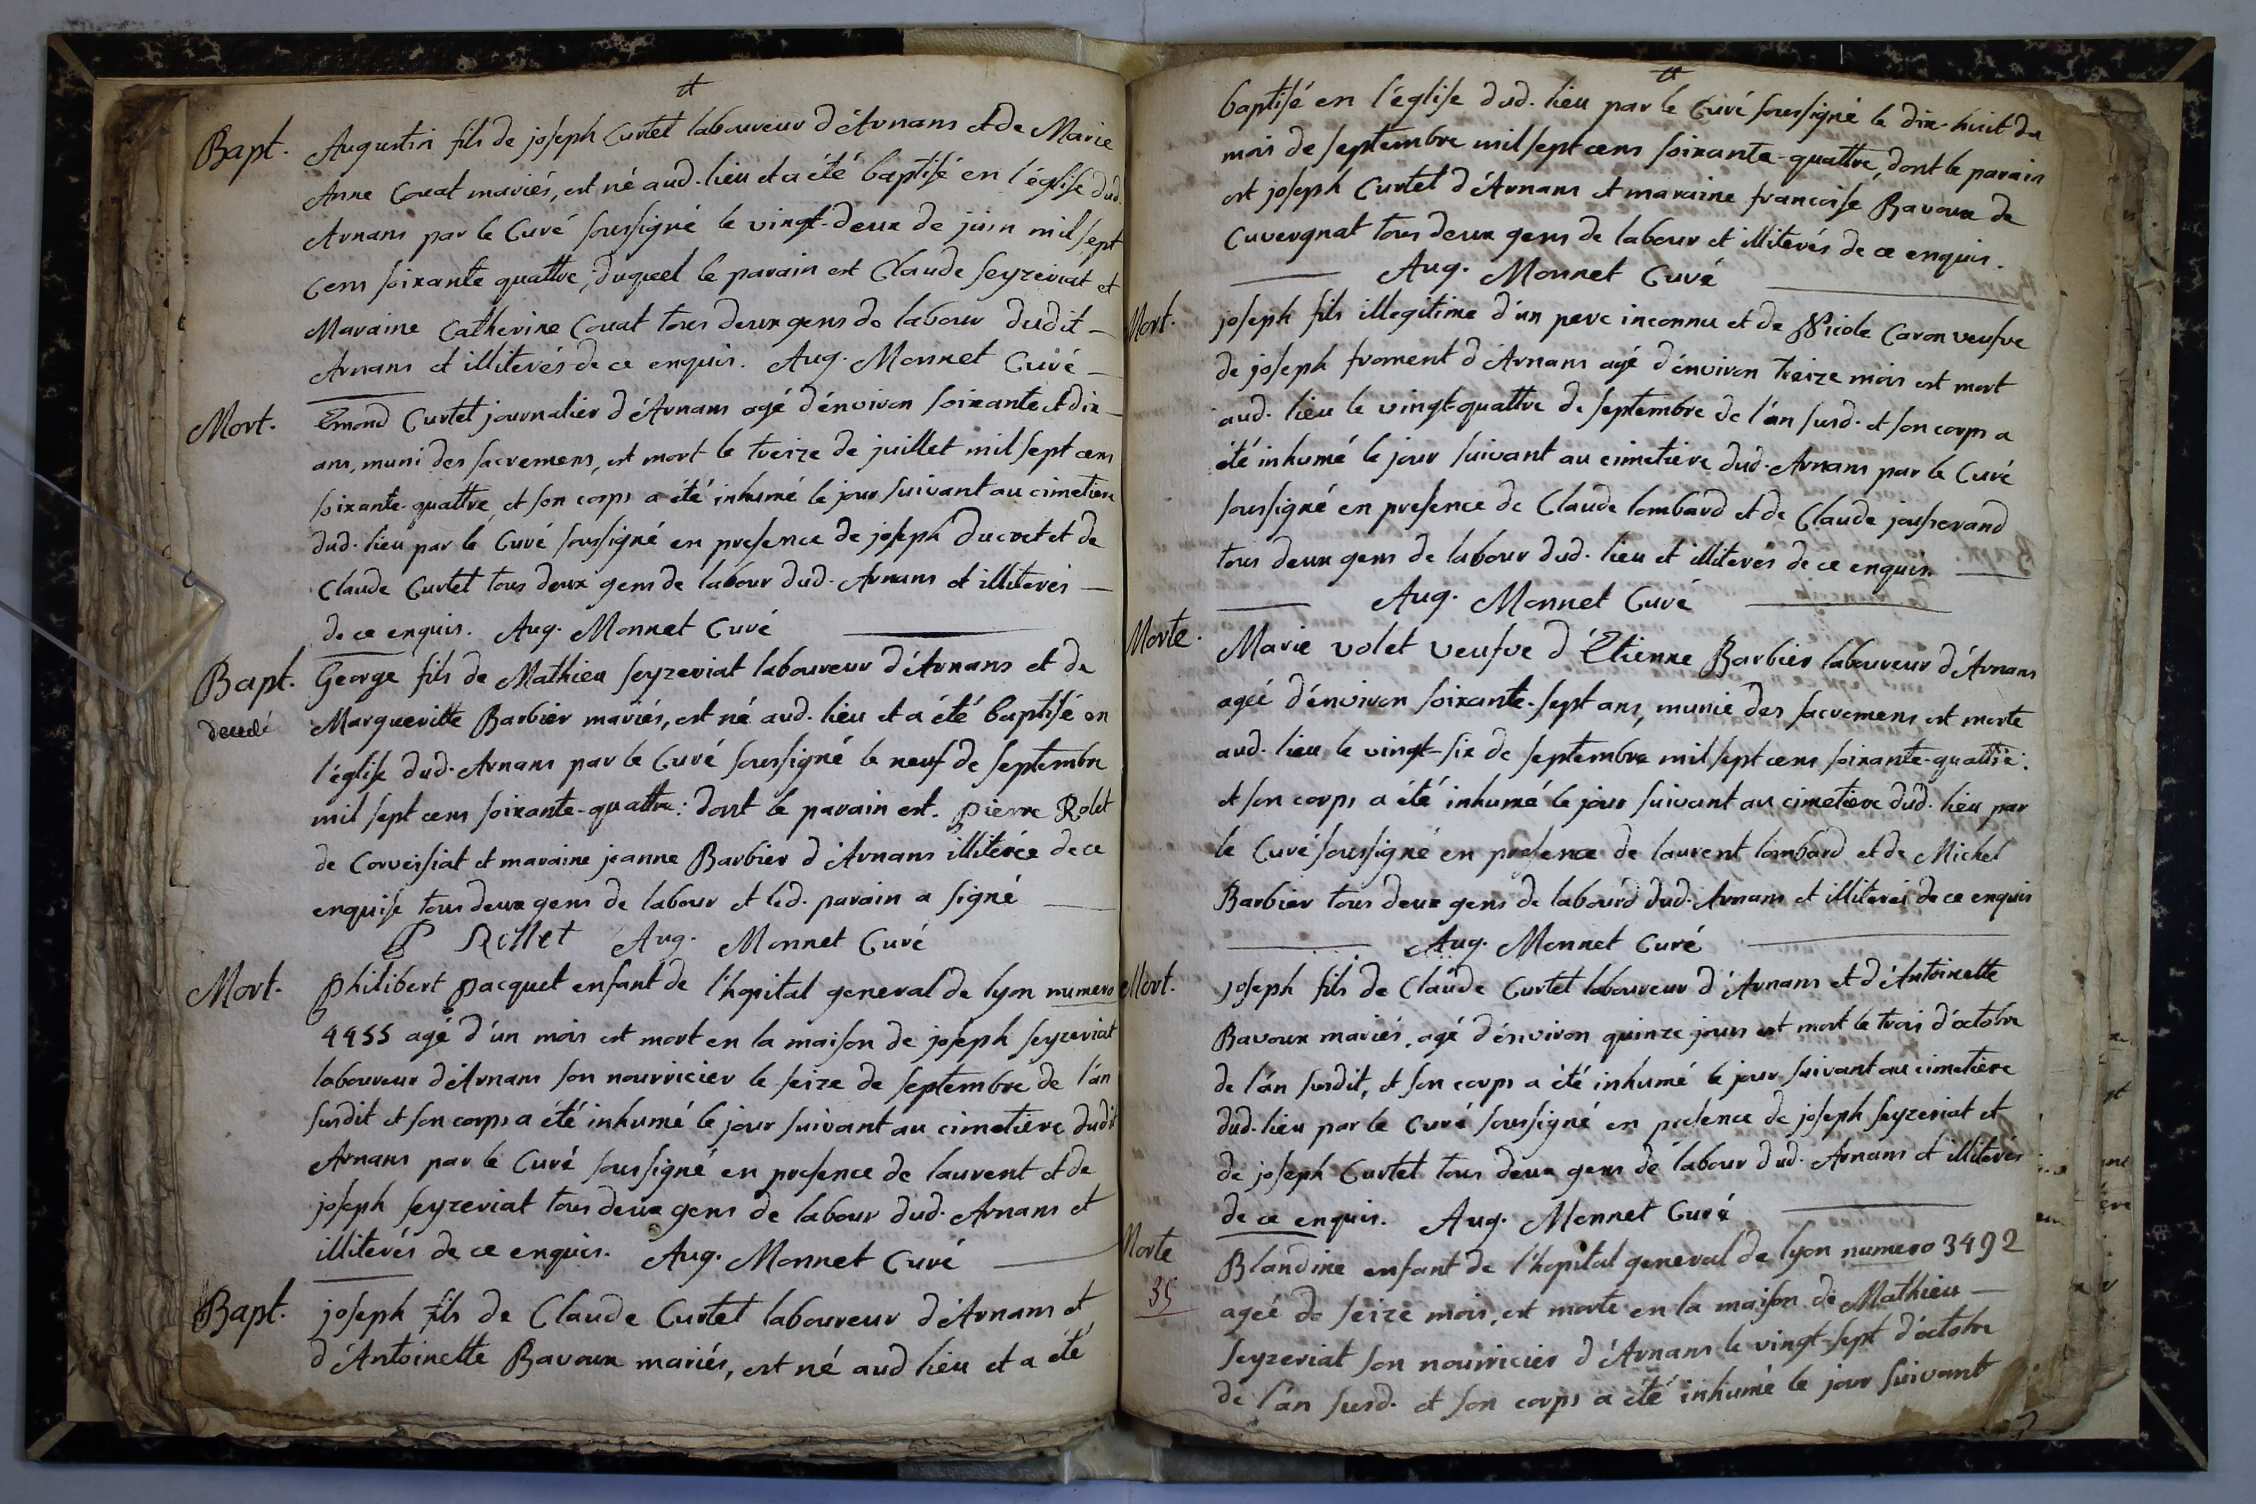 tt
Bapt. Augustin fils de joseph Curtet laboureur d'Arnans et de Marie
Anne Couat mariés, est né aud. lieu et a été baptisé en l'église dud.
Arnans par le Curé soussigné le vingt-deux de juin mil sept
cens soixante quattre, duquel le parain est Claude Seyzeriat et
Maraine Catherine Couat tous deux gens de labour dudit
Arnans et illiterés de ce enquis. Aug. Monnet Curé
Mort. Emond Curtet journalier d'Arnans agé d'environ soixante et dix
ans, muni des sacremens, est mort le treize de juillet mil sept cens
soixante-quattre, et son corps a été inhumé le jour suivant au cimetiere
dud. lieu par le Curé soussigné en presence de joseph Ducret et de
Claude Curtet tous deux gens de labour dud. Arnans et illiterés
de ce enquis. Aug. Monnet Curé
Bapt. George fils de Mathieu Seyzeriat laboureur d'Arnans et de
Margueritte Barbier mariés, est né aud. lieu et a été baptisé en
l'église dud. Arnans par le Curé soussigné le neuf de septembre
mil sept cens soixante-quattre: dont le parain est. pierre Rolet
de Corveissiat et maraine jeanne Barbier d'Arnans illiterée de ce
enquise tous deux gens de labour et led. parain a signé
P Rollet Aug. Monnet Curé
Mort. philibert pacquet enfant de l'hopital general de lyon numero
4455 agé d'un mois est mort en la maison de joseph Seyzeriat
laboureur d'Arnans son nourricier le seize de septembre de l'an
susdit et son corps a été inhumé le jour suivant au cimetière dudit
Arnans par le Curé soussigné en presence de laurent et de
joseph Seyzeriat tous deux gens de labour dud. Arnans et
illiterés de ce enquis. Aug. Monnet Curé
Bapt. joseph fils de Claude Curtet laboureur d'Arnans et
d'Antoinette Bavoux mariés, est né aud lieu et a été
tt
baptisé en l'église dud. lieu par le Curé soussigné le dix-huit du
mois de septembre mil sept cens soixante-quattre, dont le parain
est joseph Curtet d'Arnans et maraine francoise Bavoux de
Cuvergnat tous deux gens de labour et illiterés de ce enquis.
Aug. Monnet Curé
Mort. joseph fils illegitime d'un pere inconnu et de Nicole Caron veufve
de joseph froment d'Arnans agé d'environ treize mois est mort
aud. lieu le vingt-quattre de septembre de l'an susd. et son corps a
été inhumé le jour suivant au cimetière dud. Arnans par le Curé
soussigné en presence de Claude lombard et de Claude jousserand
tous deux gens de labour dud. lieu et illiterés de ce enquis.
Aug. Monnet Curé
Morte. Marie volet veufve d'Etienne Barbier laboureur d'Arnans
ageé d'environ soixante-sept ans, munie des sacremens est morte
aud. lieu le vingt-six de septembre mil sept cens soixante-quattre.
et son corps a été inhumé le jour suivant au cimetiere dud. lieu par
le Curé soussigné en presence de laurent lombard et de Michel
Barbier tous deux gens de labourd dud. Arnans et illiterés de ce enquis
Aug. Monnet Curé
Mort. joseph fils de Claude Curtet laboureur d'Arnans et d'Antoinette
Bavoux mariés, agé d'environ quinze jours est mort le trois d'octobre
de l'an susdit, et son corps a été inhumé le jour suivant au cimetière
dud. lieu par le Curé soussigné en presence de joseph Seyzeriat et
de joseph Curtet tous deux gens de labour dud. Arnans et illiterés
de ce enquis. Aug. Monnet Curé
Morte Blandine enfant de l'hopital general de lyon numero 3492
35 ageé de seize mois, est morte en la maison de Mathieu
Seyzeriat son nourricier d'Arnans le vingt-sept d'octobre
de l'an susd. et son corps a été inhumé le jour suivant